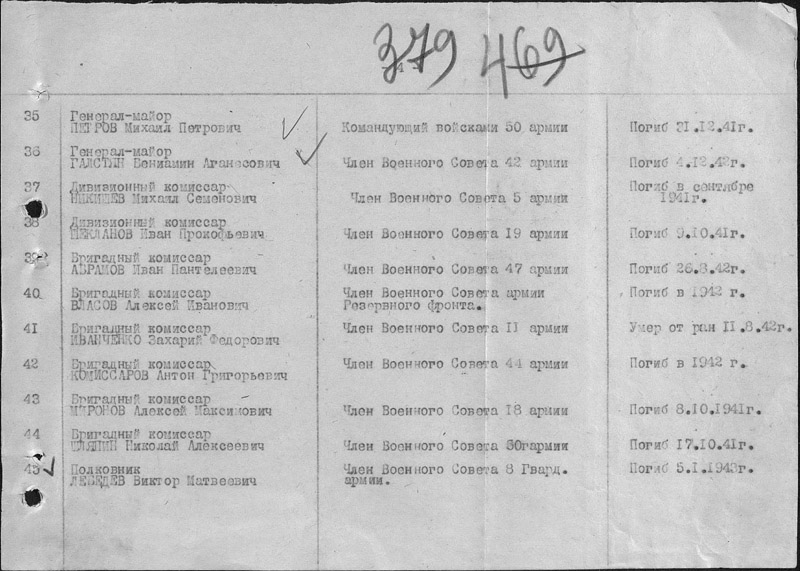 379 469
4
35 Генерал-майор
ПЕТРОВ Михаил Петрович Командующий войсками 50 армии Погиб 31.12.41г.
36 Генерал-майор
ГАЛСТЯН Бениамин Аганесович Член Военного Совета 42 армии Погиб 4.12.42г.
37 Дивизионный комиссар Погиб в сентябре
НИКИШЕВ Михаил Семенович Член Военного Совета 5 армии 1941г.
38 Дивизионный комиссар
ШЕКЛАНОВ Иван Прокофьевич Член Военного Совета 19 армии Погиб 9.10.41г.
39 Бригадный комиссар
АБРАМОВ Иван Пантелеевич Член Военного Совета 47 армии Погиб 26.8.42г.
40 Бригадный комиссар Член Военного Совета армии Погиб в 1942 г.
ВЛАСОВ Алексей Иванович Резервного фронта.
41 Бригадный комиссар Член Военного Совета 11 армии Умер от ран 11.8.42г.
ИВАНЧЕНКО Захарий Федорович
42 Бригадный комиссар Член Военного Совета 44 армии Погиб в 1942 г.
КОМИССАРОВ Антон Григорьевич
43 Бригадный комиссар
МИРОНОВ Алексей Максимович Член Военного Совета 18 армии Погиб 8.10.1941г.
44 Бригадный комиссар
ШЛЯПИН Николай Алексеевич Член Военного Совета 30 армии Погиб 17.10.41г.
45 Полковник Член Военного Совета 8 Гвард. Погиб 5.1.1943г.
ЛЕБЕДЕВ Виктор Матвеевич армии.